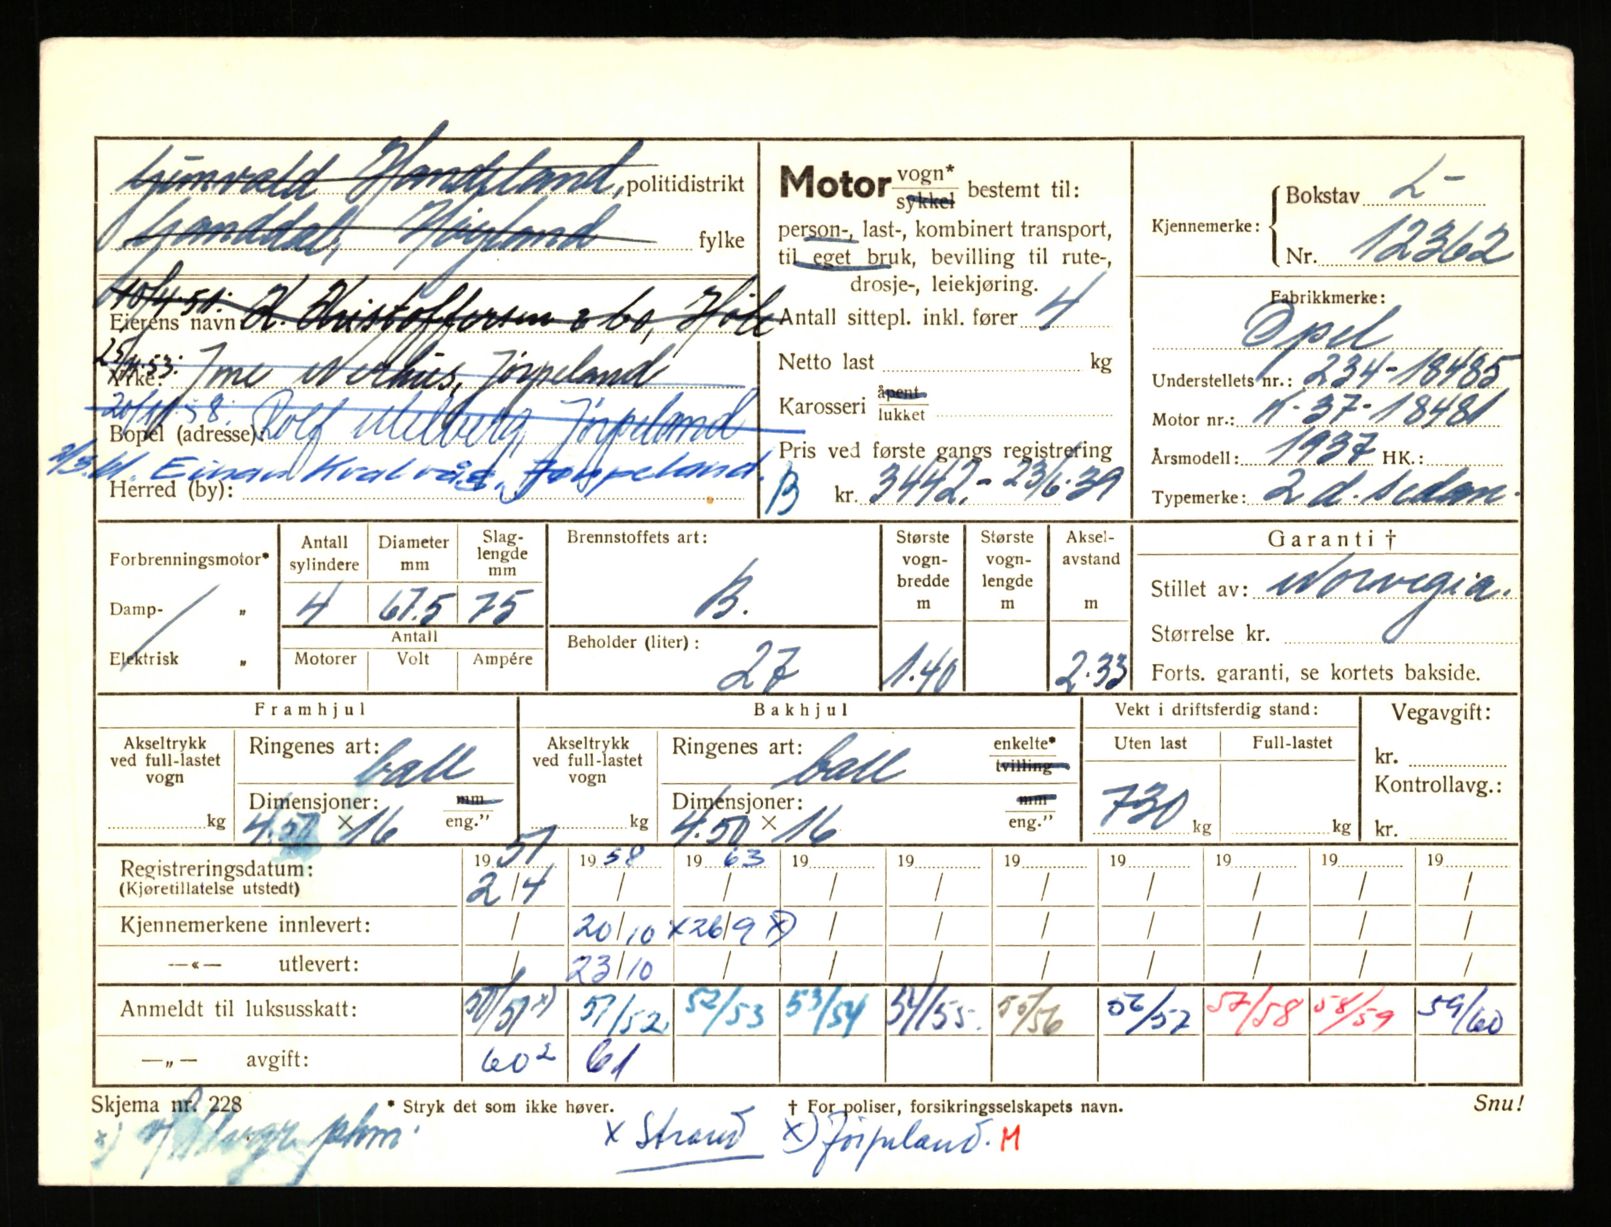 Gunvald Handeland, politidistrikt
Ganddal, Høyland fylke
10/4.51. Eierens navn K. Kristoffersen & co, Høle
25/11.53. Yrke: Jme Nerhus, Jørpeland
20/10 58. Bopel (adresse): Rolf Melberg, Jørpeland
Einar Kvalvåg, Jørpeland.
Herred (by):
Motor vogn* sykkel bestemt til:
person-, last-, kombinert transport,
til eget bruk, bevilling til rute-,
drosje-, leiekjøring.
Antall sittepl. inkl. fører 4
Netto last kg
Karosseri åpent lukket
Pris ved første gangs registrering
B kr. 3442.- 23/6.39
Kjennemerke: Bokstav L-
Nr. 12362
Fabrikkmerke:
Opel
Understellets nr.: 234-18485
Motor nr.: K-37-18481
Årsmodell: 1937 HK.:
Typemerke: 2 d. sedan.
Forbrenningsmotor*
Damp- „
Elektrisk „
Antall sylindere Diameter mm Slag-lengde mm
4 67.5 75
Antall
Motorer Volt Ampére
Brennstoffets art:
B.
Beholder (liter):
27
Største vogn-bredde m Største vogn-lengde m Aksel-avstand m
1.40 2.33
Garanti †
Stillet av: Norvegia.
Størrelse kr.
Forts. garanti, se kortets bakside.
Framhjul
Akseltrykk ved full-lastet vogn
kg
Ringenes art: ball
Dimensjoner: mm
4.50 × 16 eng.”
Bakhjul
Akseltrykk ved full-lastet vogn
kg
Ringenes art: ball enkelte* tvilling
Dimensjoner: mm
4.50 × 16 eng.”
Vekt i driftsferdig stand:
Uten last Full-lastet
730 kg kg
Vegavgift:
kr.
Kontrollavg.:
kr.
19 51 19 58 19 63 19 19 19 19 19 19 19
Registreringsdatum: 2/4 / / / / / / / / /
(Kjøretillatelse utstedt)
Kjennemerkene innlevert: / 20/10 x 26/9 x) / / / / / / /
—«— utlevert: / 23/10 / / / / / / / /
Anmeldt til luksusskatt: 50/51 x) 51/52 52/53 53/54 54/55. 55/56 56/57 57/58 58/59 59/60
—„— avgift: 60² 61
Skjema nr. 228 * Stryk det som ikke høver. † For poliser, forsikringsselskapets navn. Snu!
x) x Strand x) Jørpeland. M